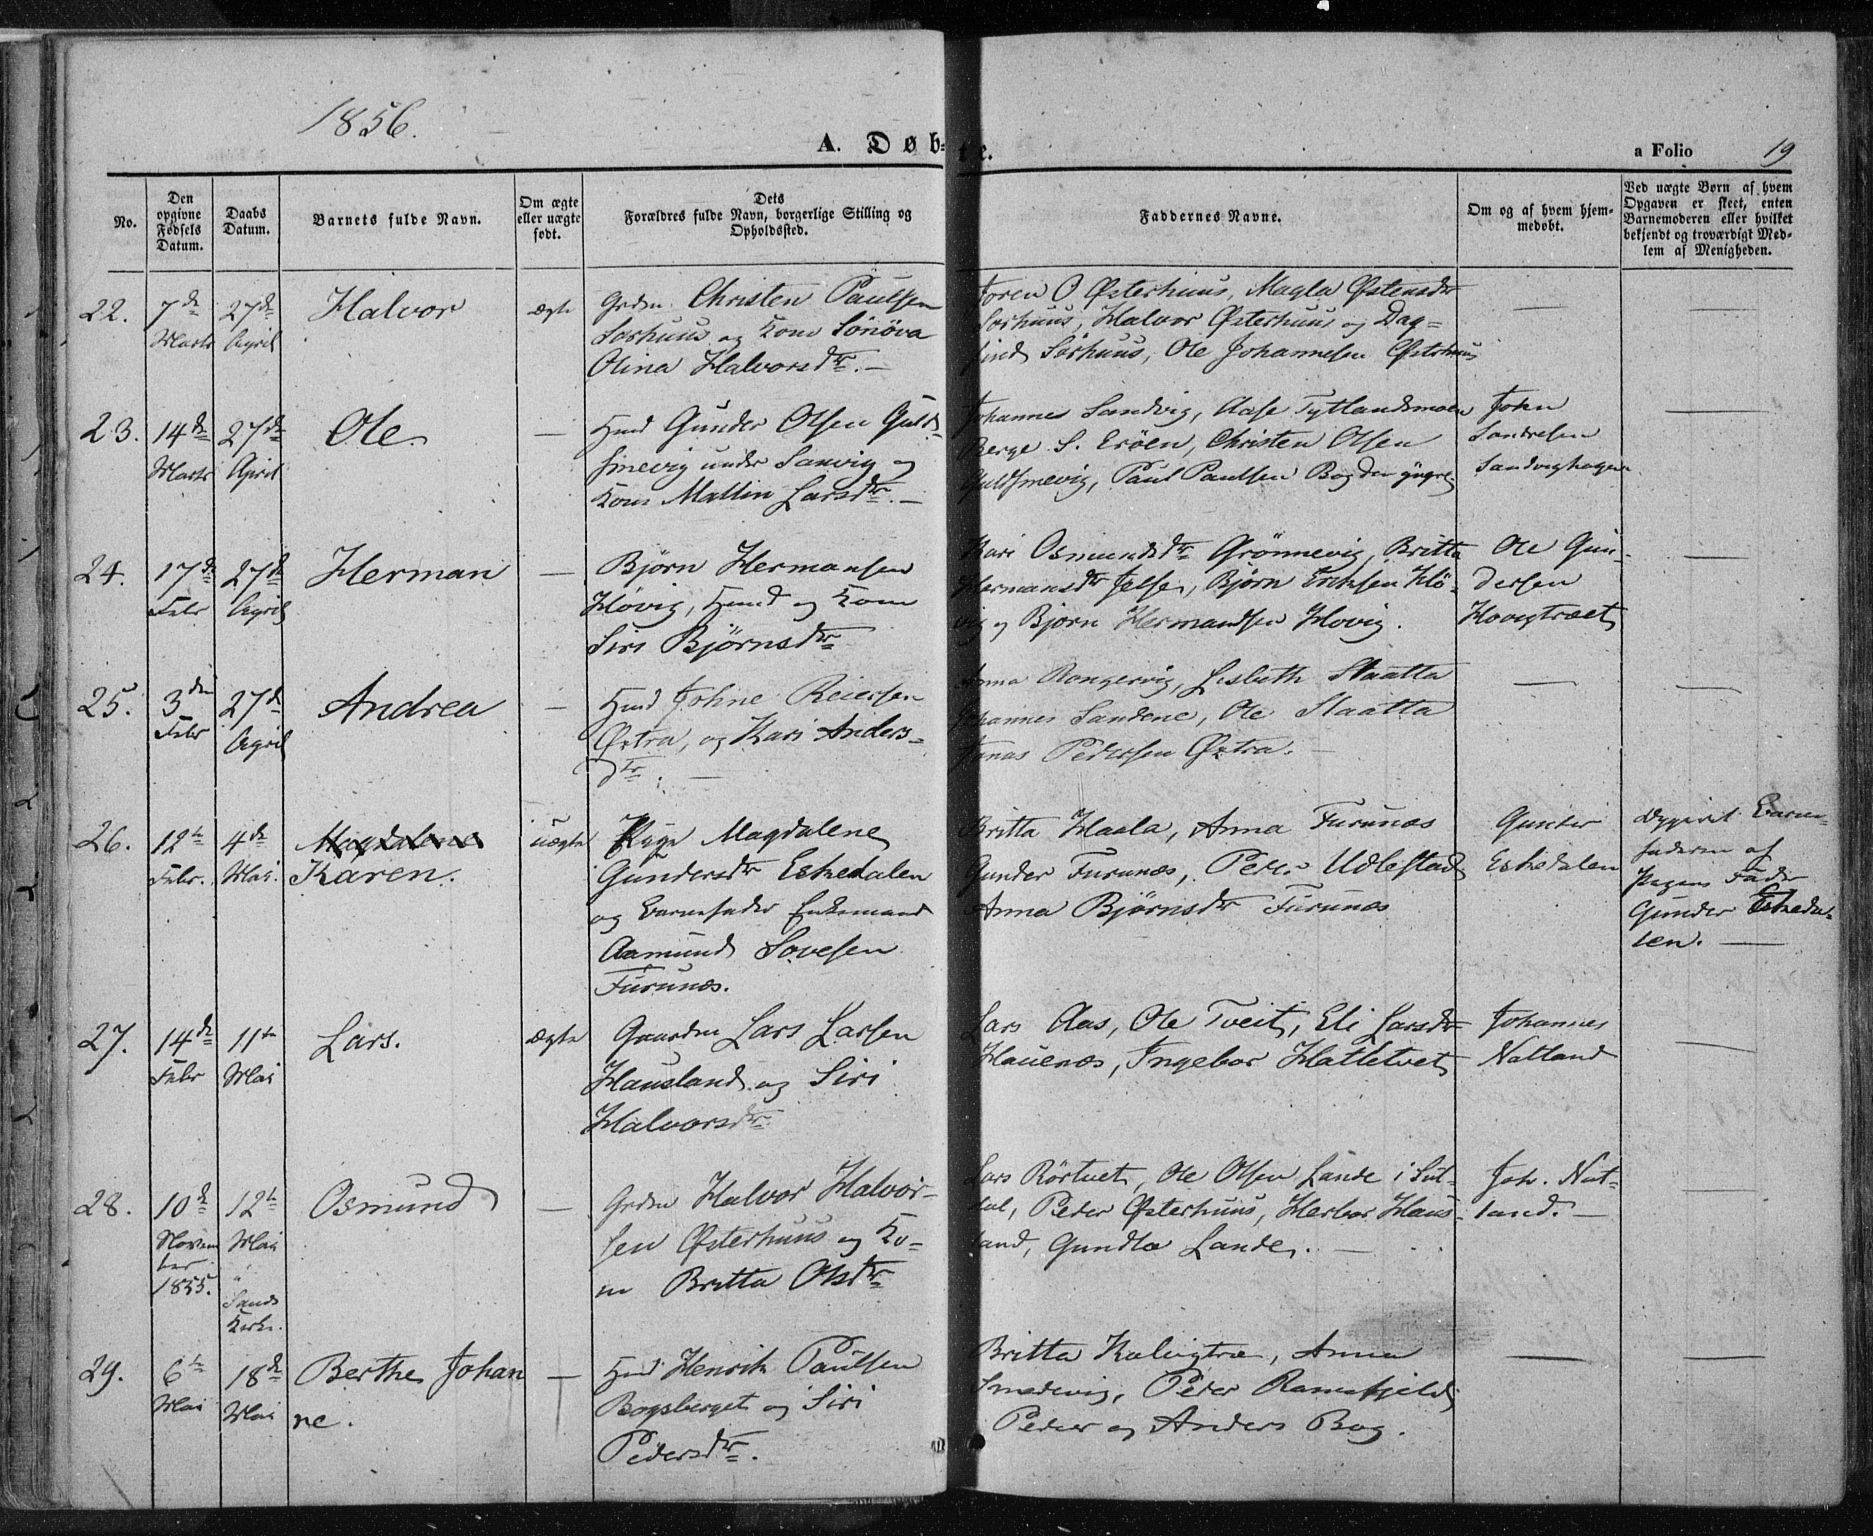 1856.
A. Døb-
te.
a Folio 19
No.
Den
opgivne
Fødsels
Datum.
Daabs
Datum.
Barnets fulde Navn.
Om ægte
eller uægte
født.
Dets
Forældres fulde Navn, borgerlige Stilling og
Opholdssted.
Faddernes Navne.
Om og af hvem hjem-
medøbt.
Ved uægte Børn af hvem
Opgaven er skeet, enten
Barnemoderen eller hvilket
bekjendt og troværdigt Med-
lem af Menigheden.
22.
7de
Marts
27de
April
Halvor
ægte
Grdm. Christen Paulsen
Soshuus og Kone Sönöva
Olina Halvorsdtr. —
Soren O Østerhuus, Magla Østensdtr
Soshuus, Halvor Østerhuus og Dag-
find Soshuus, Ole Johannesen Østerhuus
—
—
23.
14de
Marts
27de
April
Ole
—
Huusmd Gunder Olsen Guld-
smevig under Sanvig og
Kone Mallin Larsdtr. —
Johannes Sandvig, Aase Tytlandsmoen
Berge S. Eröen, Christen Olsen
Guldsmevig, Paul Paulsen Bog den yngre.
John
Sandresen
Sandvighagen
—
24.
17de
Febr
27de
April
Herman
—
Bjørn Hermansen
Høvig, Huusmd og Kone
Siri Bjørnsdtr
Kari Osmundsdtr Grönnevig, Britta
Hermansdtr Jelse, Bjørn Eriksen Hö-
vig og Bjørn Hermandsen Hovig.
Ole Gun-
dersen
Hovigtræet
—
25.
3den
Febr
27de
April
Andrea
—
Huusmd Johne Reiersen
Østra, og Kari Anders-
dtr. —
Anna Rongevig, Lisbeth Staatta
Johannes Sandene, Ole Staatta
Jonas Pedersen Østra. —
—
—
26.
12te
Febr.
4de
Mai.
Magdalena
Karen.
uægte
Pige Magdalene
Gundersdtr Eskedalen
og Barnefader Enkemand
Aamund Sovesen
Furunæs.
Britta Haala, Anna Furunæs
Gunder Furunæs, Peder Udlestad
Anna Bjørnsdtr Furunæs
Gunder
Eskedalen
Opgivet Barne-
faderen af
Pigens Fader
Gunder Eskeda-
len. —
27.
14de
Febr
11te
Mai
Lars.
ægte
Gaardm Lars Larsen
Hausland og Siri
Halvorsdtr.
Lars Aas, Ole Tveit, Eli Larsdtr
Hauenæs, Ingebor Hatletvet
Johannes
Natland
—
28.
10de
Novem
ber
1855.
12te
Mai
"
Sands
Kirke.
Osmund
—
Grdm Halvor Halvor-
sen Østerhuus og Ko-
ne Britta Olsdtr
Lars Rörtvet, Ole Olsen Lande i Sul-
dal, Peder Østerhuus, Herbor Haus-
land, Gundla Lande. —
Joh. Nat-
land. —
—
29.
6te
Mai
18de
Mai
Berthe Johan
ne.
—
Huusmd Henrik Paulsen
Bogsberget og Siri
Pedersdtr.
Britta Kalvigtræ, Anna
Smedevig, Peder Ramsfjeld
Peder og Anders Bog.
—
—